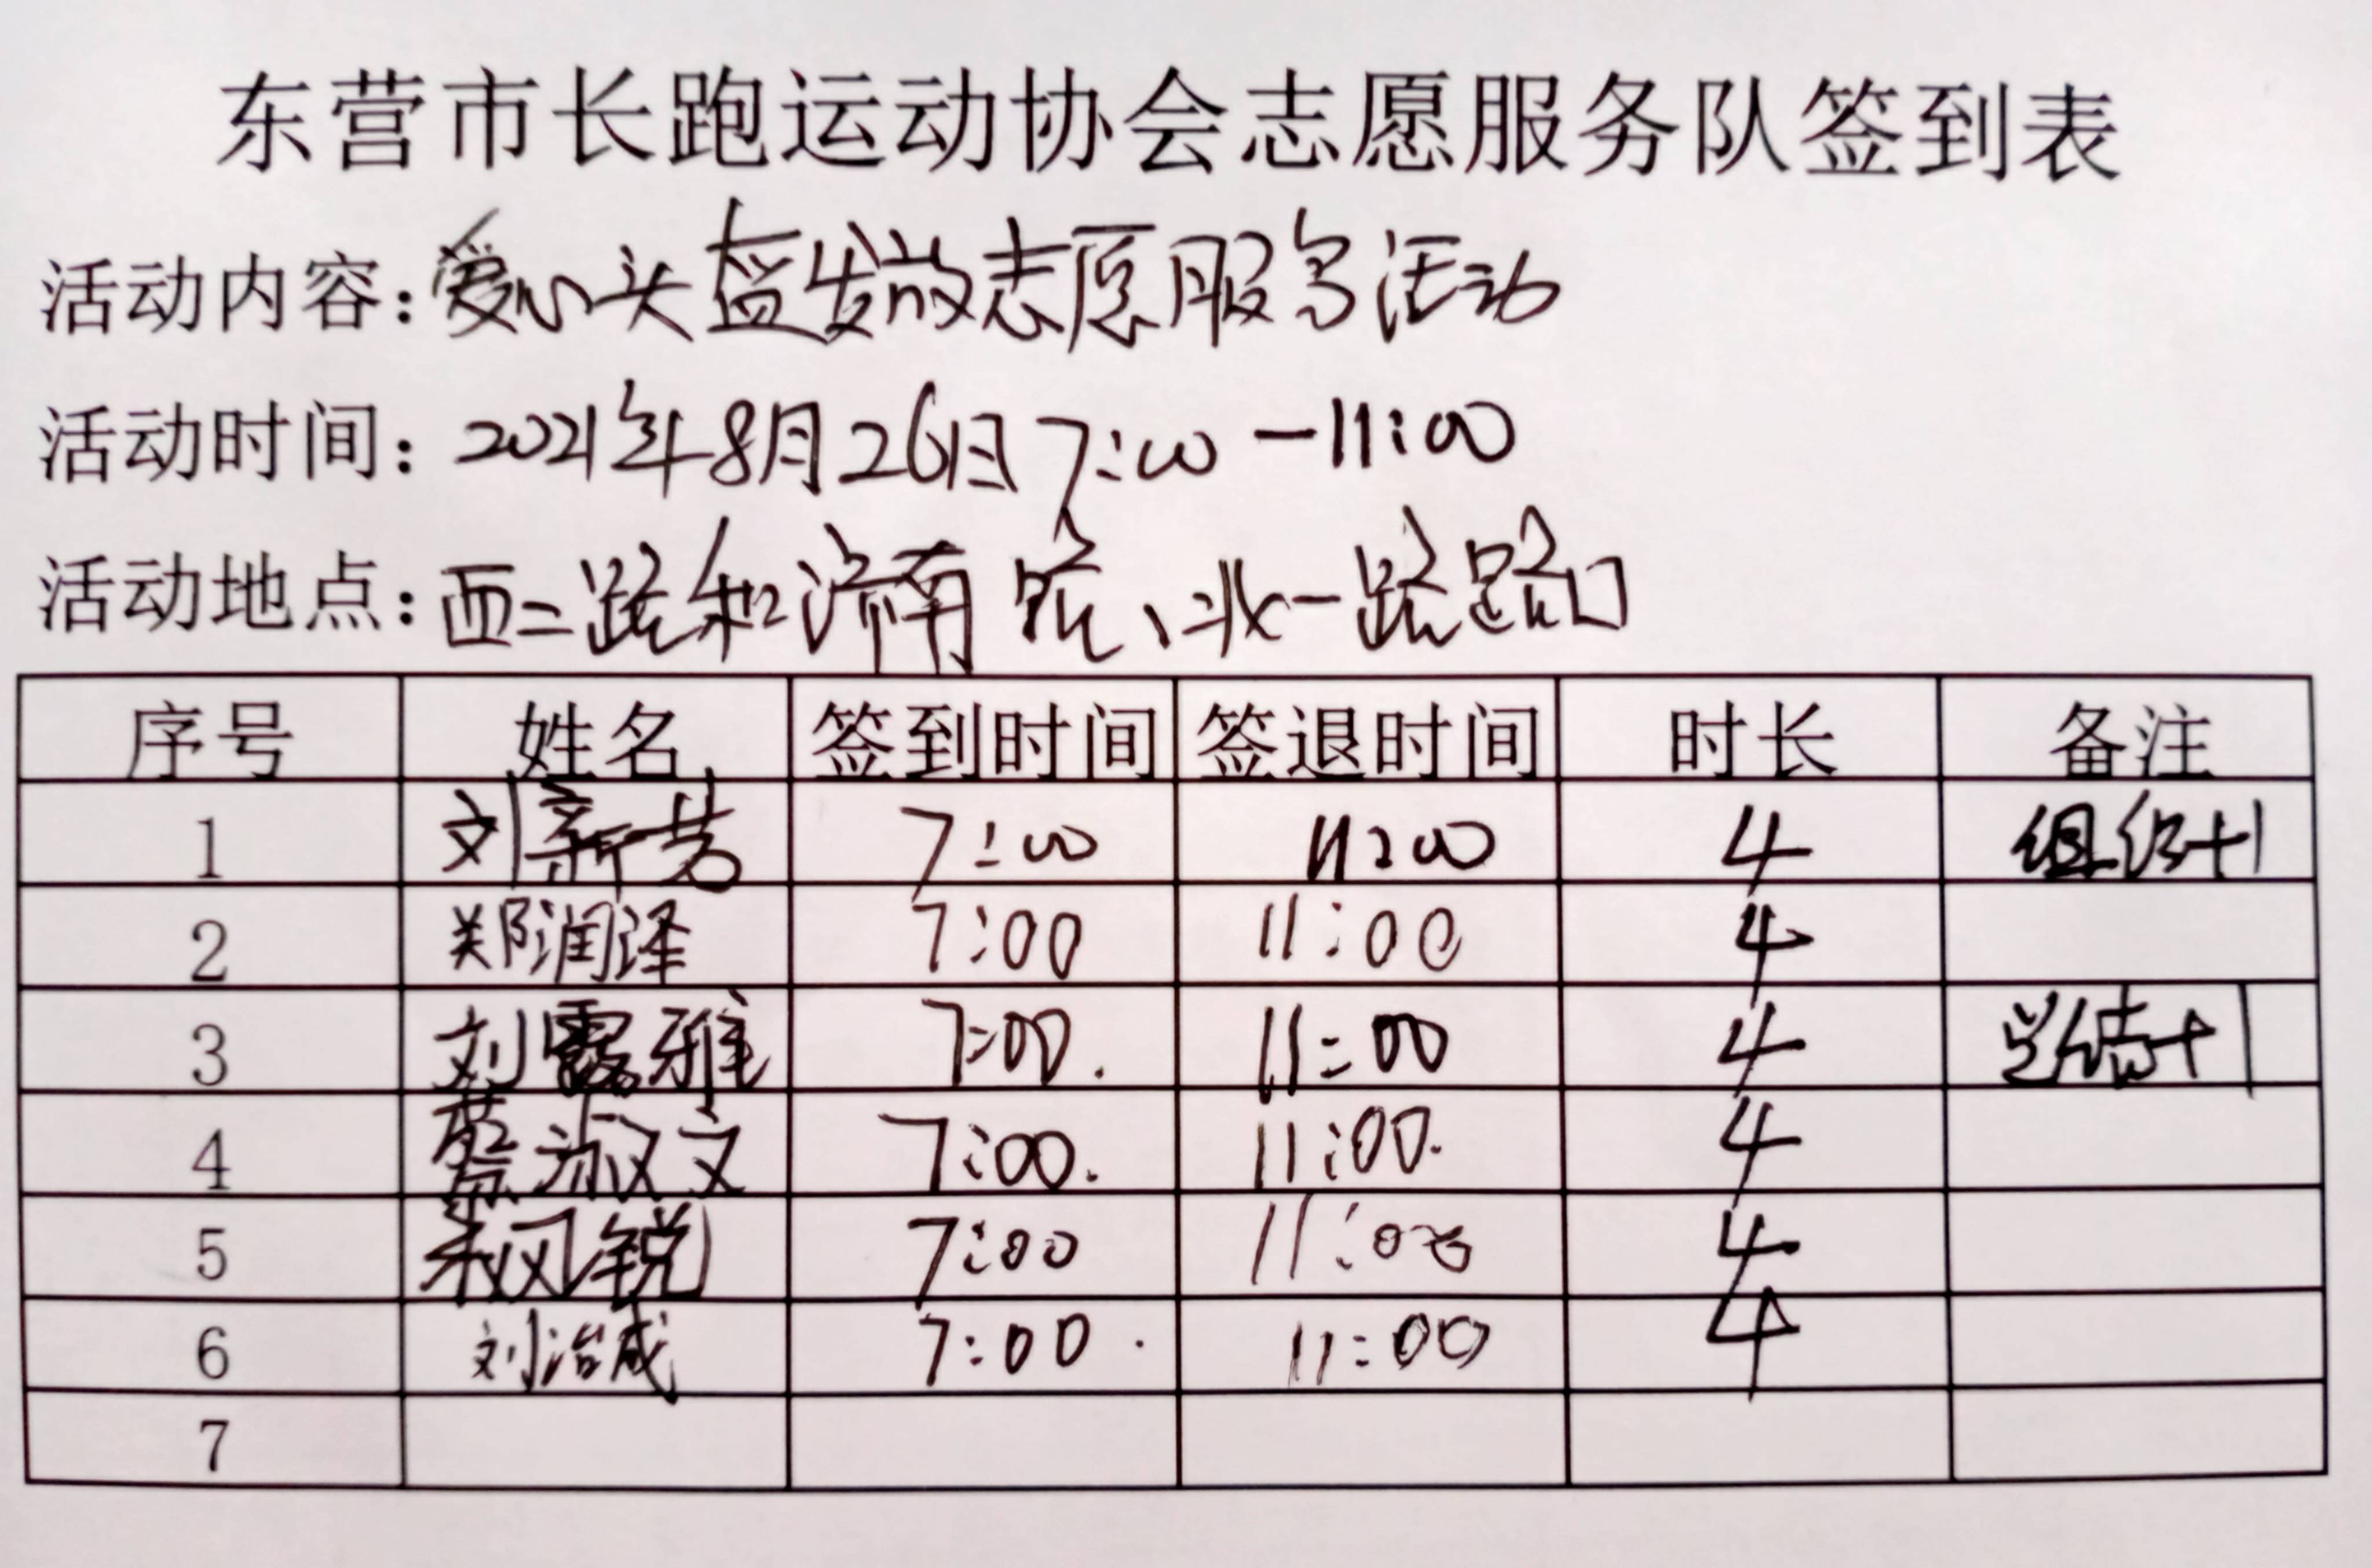 东营市长跑运动协会志愿服务队签到表
活动内容：爱心头盔发放志愿服务活动
活动时间：2021年8月26日7:00-11:00
活动地点：西二路和济南路、北一路路口
序号 姓名 签到时间 签退时间 时长 备注
1 刘新芳 7:00 11:00 4 组织+1
2 郑润泽 7:00 11:00 4
3 刘霞雅 7:00. 11:00 4 总结+1
4 蔡淑文 7:00. 11:00. 4
5 风锐 7:00 11:00 4
6 刘治成 7:00. 11:00 4
7